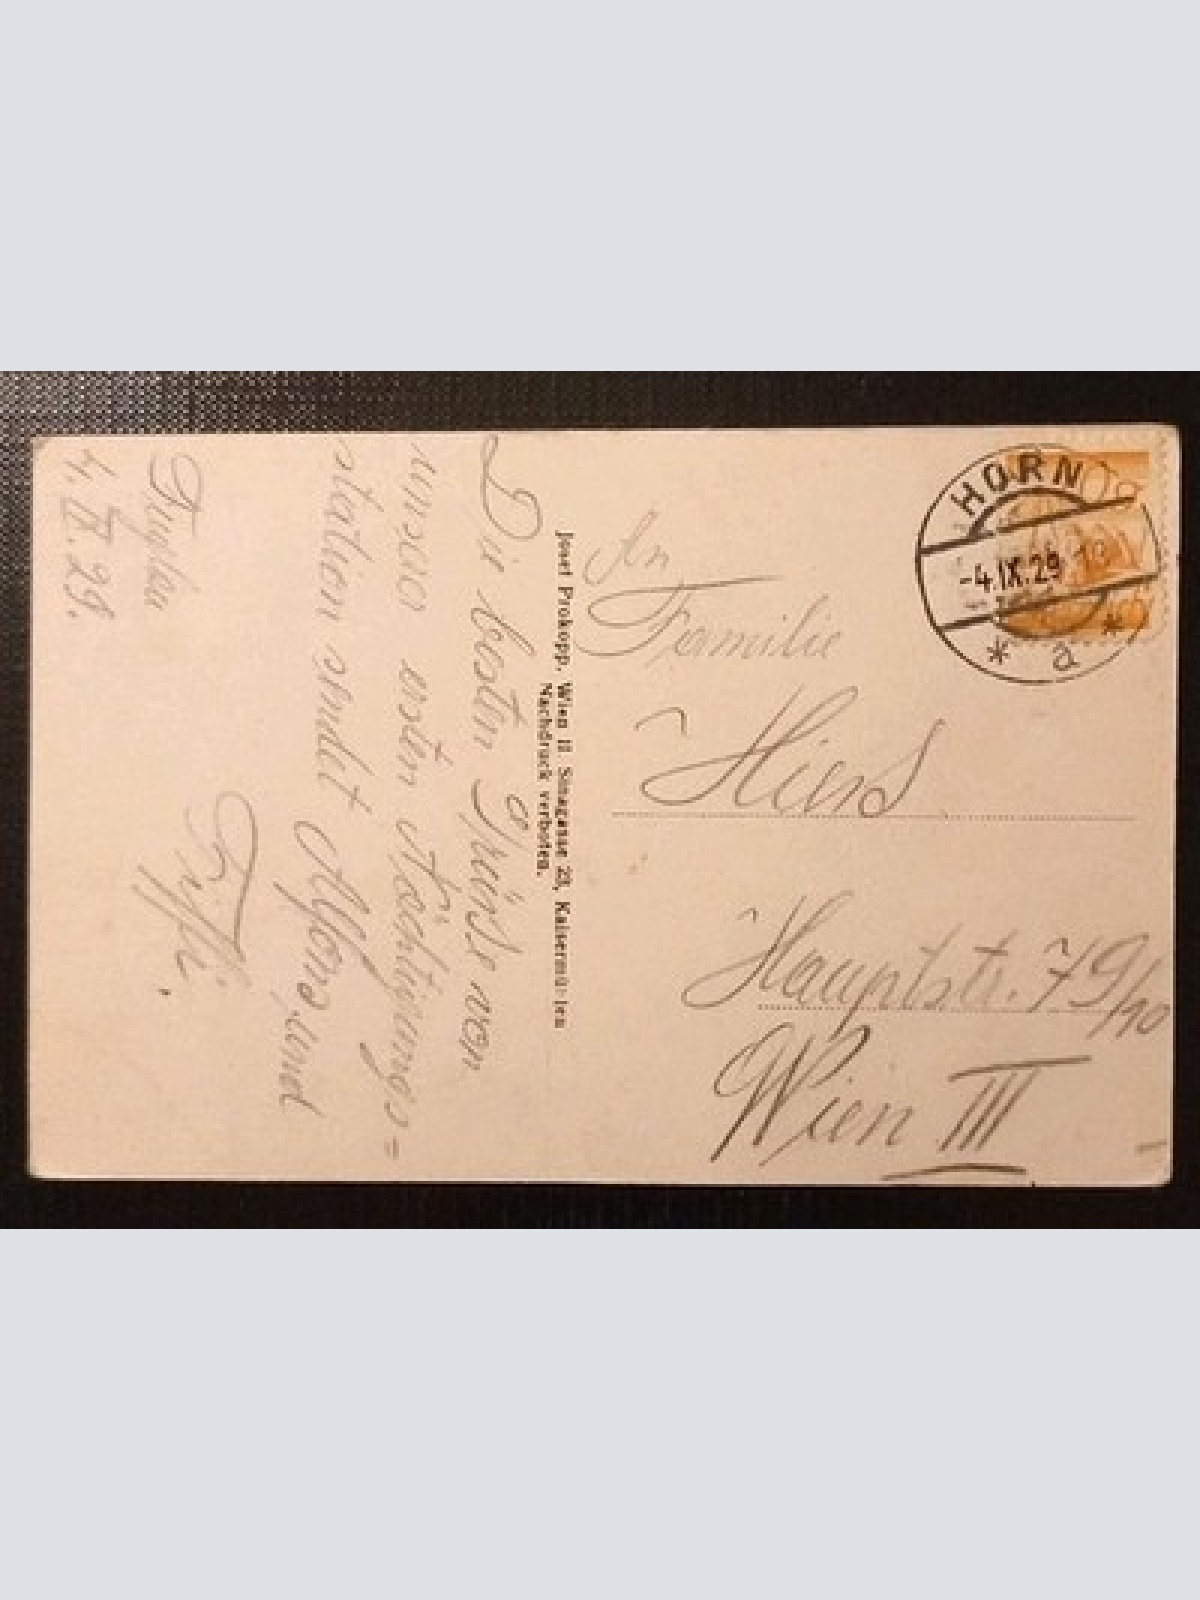 HORN
-4.IX.29
* a *
An
Familie
Hirs
Hauptstr. 79/10
Wien III
Josef Prokopp, Wien II. Sinagasse 23, Kaisermühlen
Nachdruck verboten.
Die besten Grüße von
unserer ersten Nächtigungs=
station sendet Alfons und
Fritzi.
4. IX. 29.